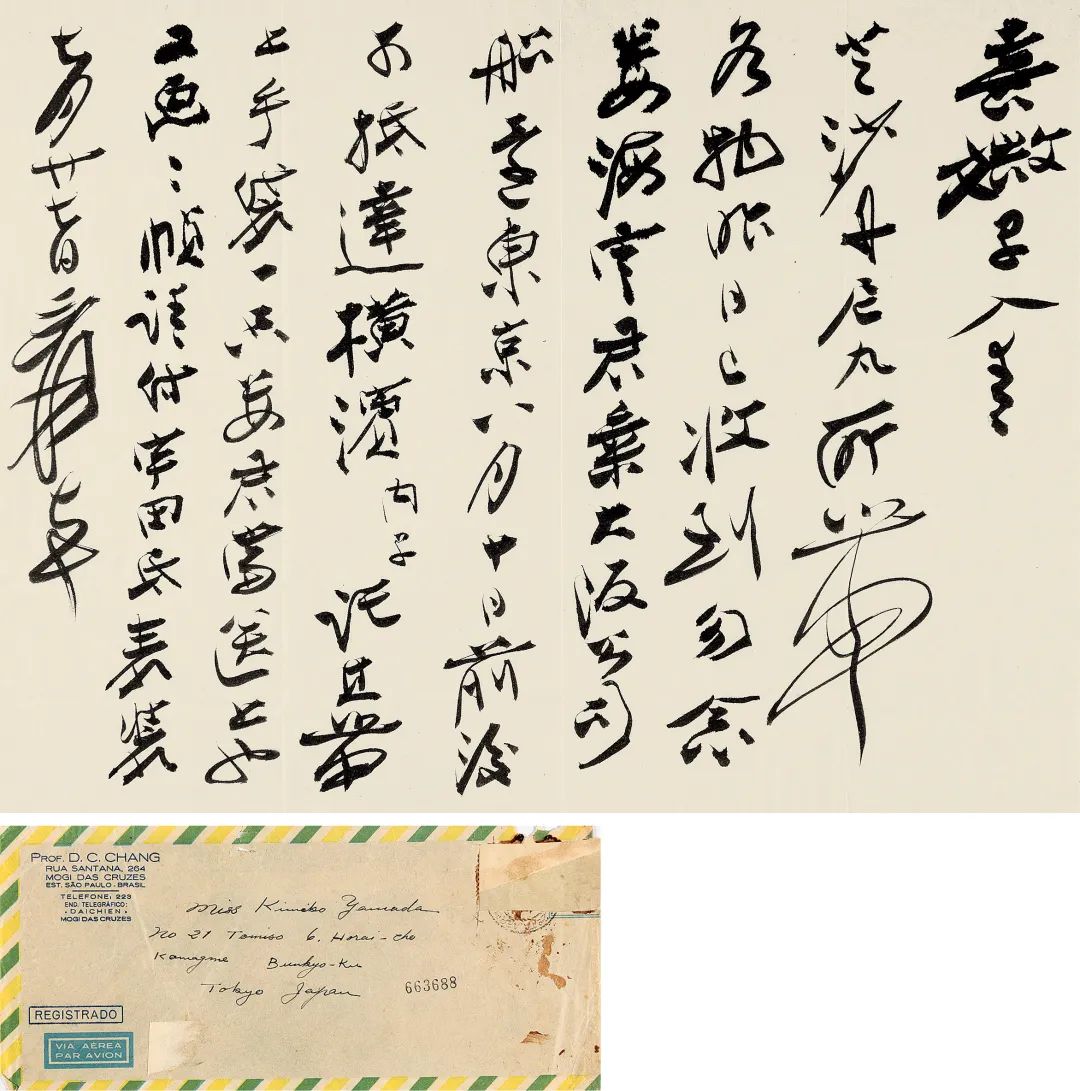 喜媺子
芝沙丹尼丸所帶
各物昨日已收到勿念
婁海雲君乘大阪公司
船至東京八月十日前後
可抵達橫濱內子託其帶
上手袋一只婁君當送上也
又畫二幀請付宇田氏表裝
七月廿七日爰
PROF. D. C. CHANG
RUA SANTANA, 264
MOGI DAS CRUZES
EST. SÃO PAULO - BRASIL
TELEFONE: 223
END. TELEGRÁFICO:
"DAICHIEN"
MOGI DAS CRUZES
Miss Kimiko Yamada
No 21 Tomiso 6. Horai-cho
Komagme Bunkyo-Ku
Tokyo Japan
663688
REGISTRADO
VIA AÉREA
PAR AVION